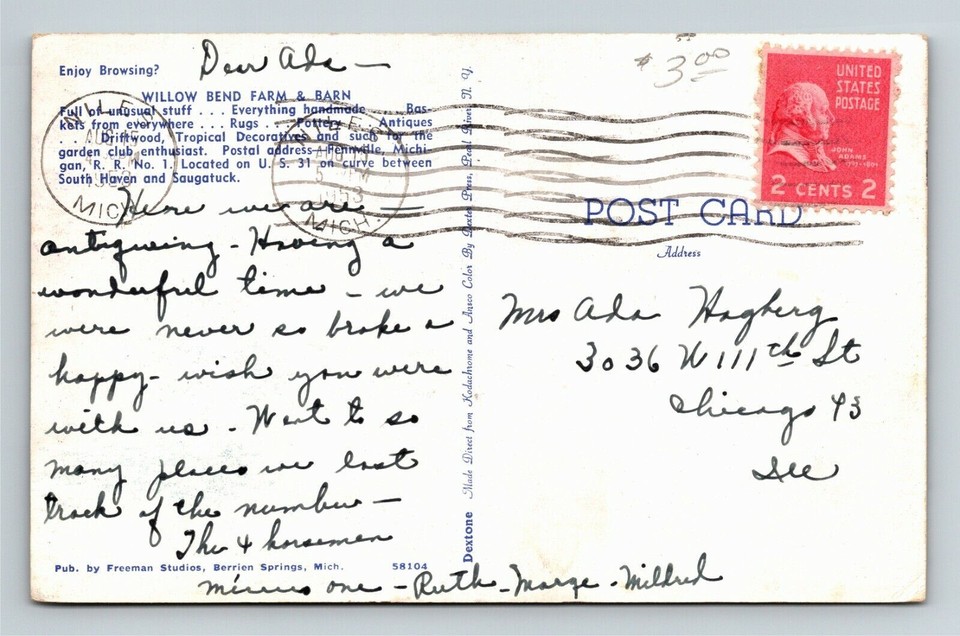 Dear Ada —
Enjoy Browsing?
WILLOW BEND FARM & BARN
Full of unusual stuff . . . Everything handmade . . . Bas-
kets from everywhere . . . Rugs . . . Pottery . . . Antiques
. . . Driftwood, Tropical Decoratives and such for the
garden club enthusiast. Postal address—Fennville, Michi-
gan, R. R. No. 1. Located on U. S. 31 on curve between
South Haven and Saugatuck.
Here we are —
antiqueing - Having a
wonderful time - we
were never so broke &
happy - wish you were
with us - Went to so
many places we lost
track of the number —
The 4 horsemen
minus one - Ruth - Marge - Mildred
Pub. by Freeman Studios, Berrien Springs, Mich. 58104
Dextone Made Direct from Kodachrome and Ansco Color By Dexter Press, Pearl River, N. Y.
1953
MICH.
MICH.
$3.00
UNITED
STATES
POSTAGE
JOHN
ADAMS
1797-1801
2 CENTS 2
POST CARD
Address
Mrs Ada Hagberg
3036 W 111th St
Chicago 43
Ill